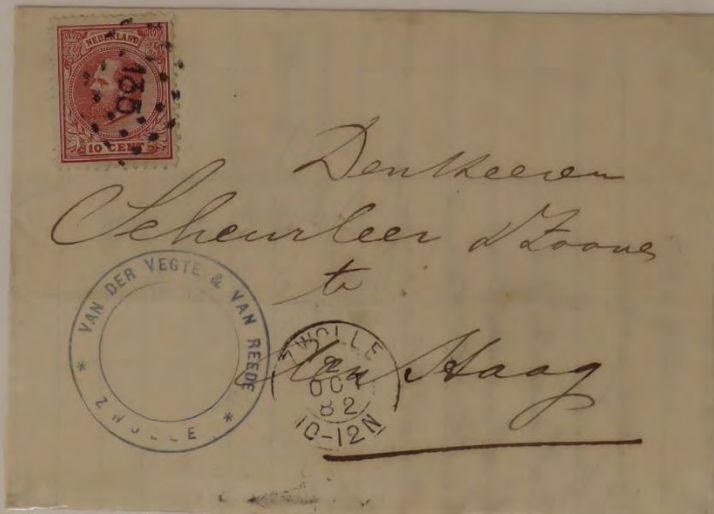 NEDERLAND
135
10 CENT
Den Heeren
Scheurleer & Zoonen
te
den Haag
VAN DER VEGTE & VAN REEDE
* ZWOLLE. *
ZWOLLE
OCT
82
10-12N